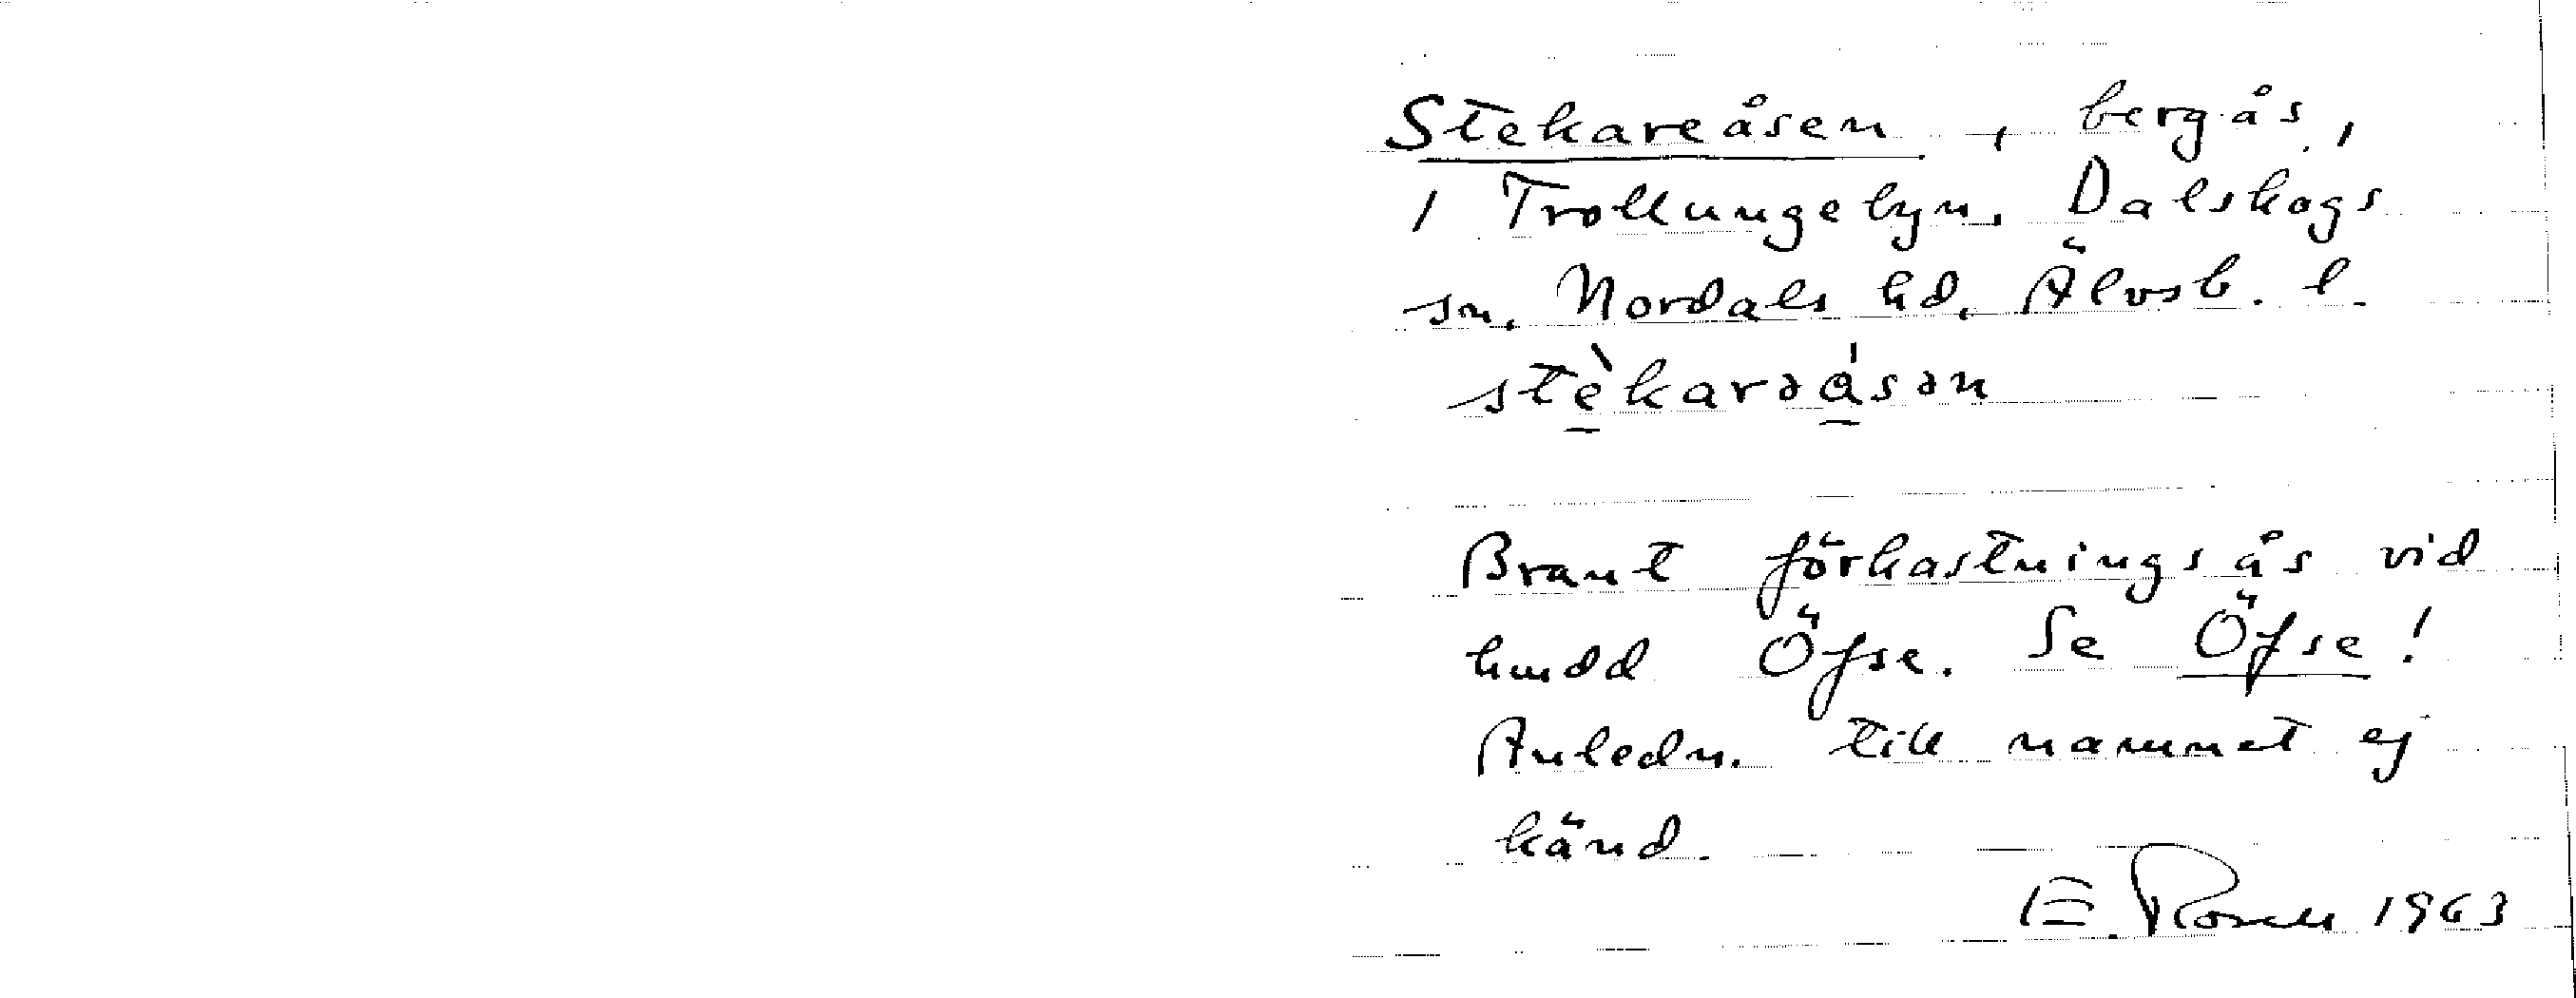 Stekareåsen, bergås,
i Trollungebyn. Dalskogs
sn. Nordals hd. Älvsb. l.
stèkarəåsən
Brant förkastningsås vid
hmdd Öfse. Se Öfse!
Anledn. till namnet ej
känd.
E. Rosell 1963